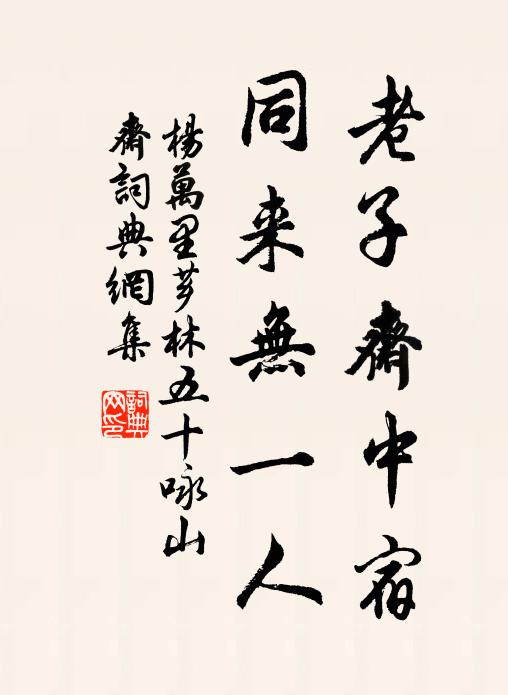 老子齋中宿
同来無一人
楊萬里芗林五十咏山
齋詞典網集
詞典
网印